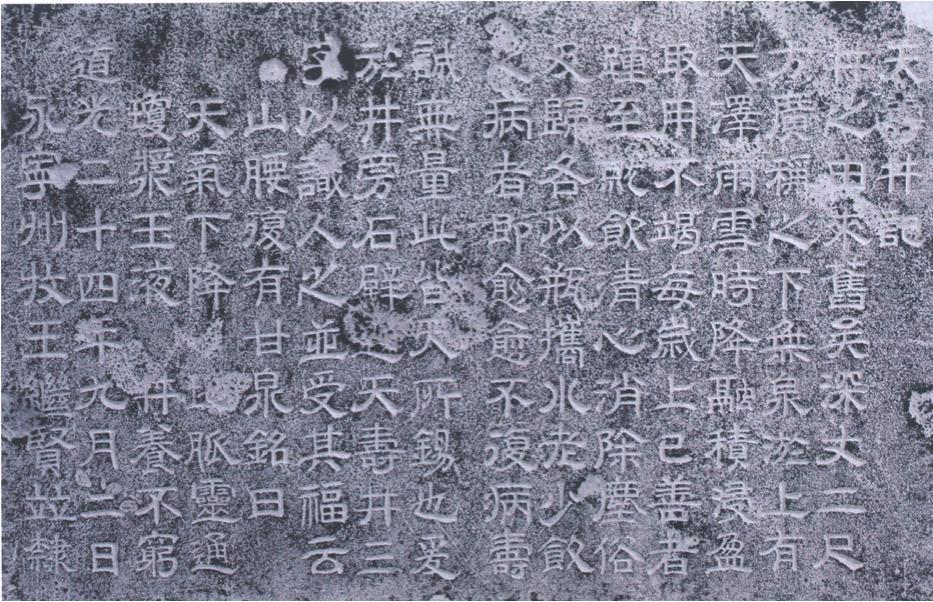 天壽井記
井之由來舊矣深丈二尺
方廣稱之下無泉於上有
天澤雨雪時降融積浸盈
取用不竭每歲上巳善者
踵至飲清心消除塵俗
及歸各以瓶攜水老少飲
之病者即愈愈不復病壽
誠無量此皆天所錫也爰
於井旁石壁天壽井三
字以識人之並受其福云
山腰復有甘泉銘曰
天氣下降 地脈靈通
瓊漿玉液 井養不窮
道光二十四年九月二日
永寧州牧王繼賢並隸